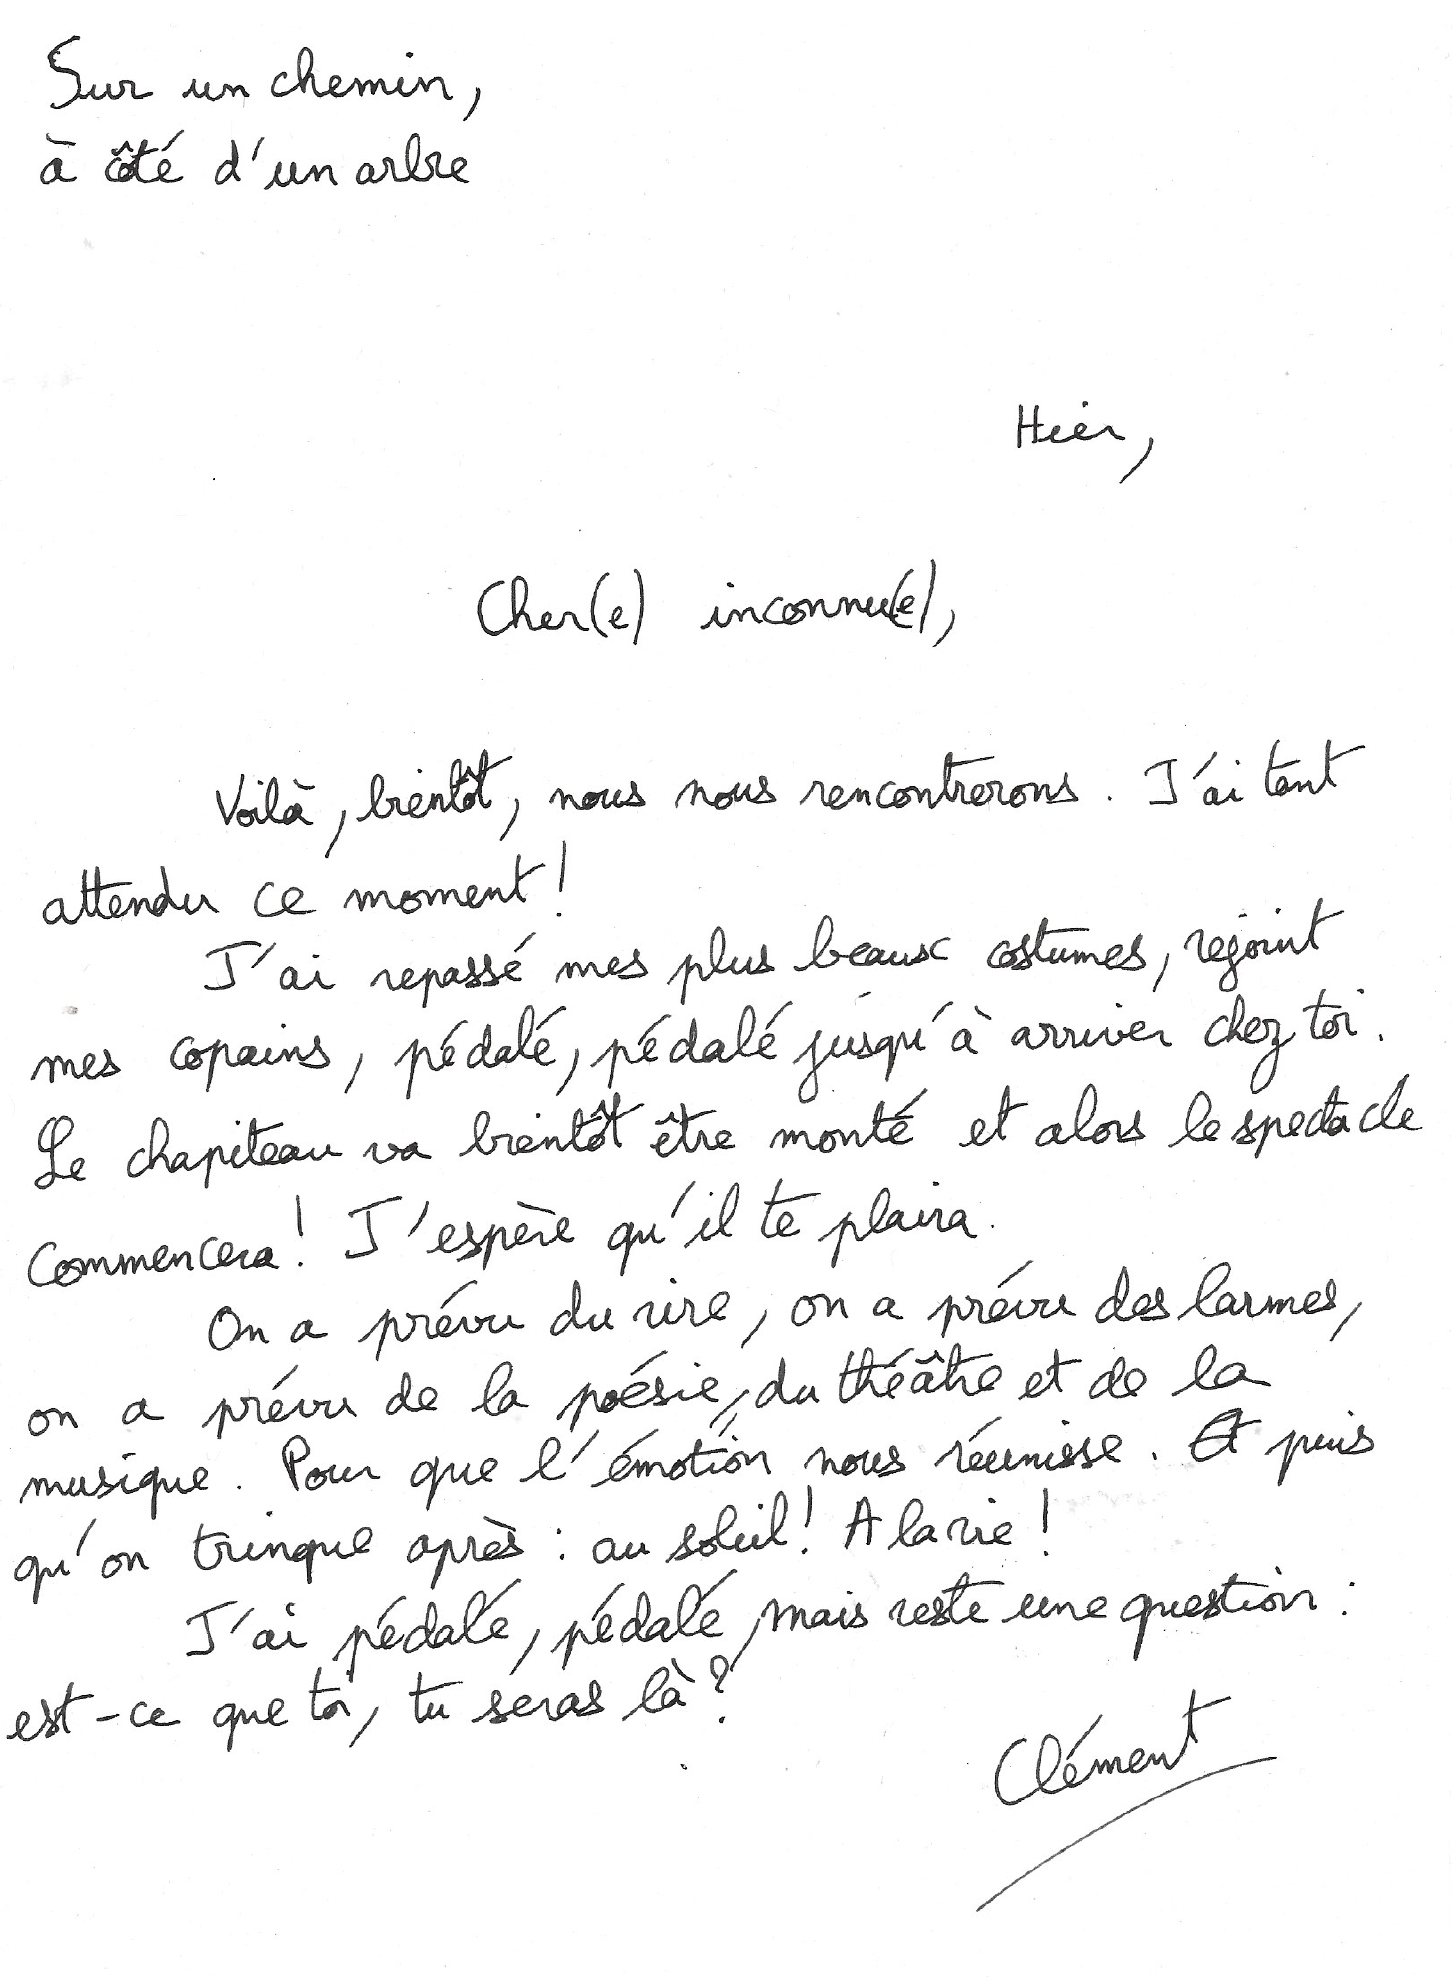 Sur un chemin,
à côté d'un arbre
Hier,
Cher(e) inconnu(e),
Voilà, bientôt, nous nous rencontrerons. J'ai tant
attendu ce moment !
J'ai repassé mes plus beaux costumes, rejoint
mes copains, pédalé, pédalé jusqu'à arriver chez toi.
Le chapiteau va bientôt être monté et alors le spectacle
commencera ! J'espère qu'il te plaira.
On a prévu du rire, on a prévu des larmes,
on a prévu de la poésie, du théâtre et de la
musique. Pour que l'émotion nous réunisse. Et puis
qu'on trinque après : au soleil ! A la vie !
J'ai pédalé, pédalé, mais reste une question :
est-ce que toi, tu seras là ?
Clément